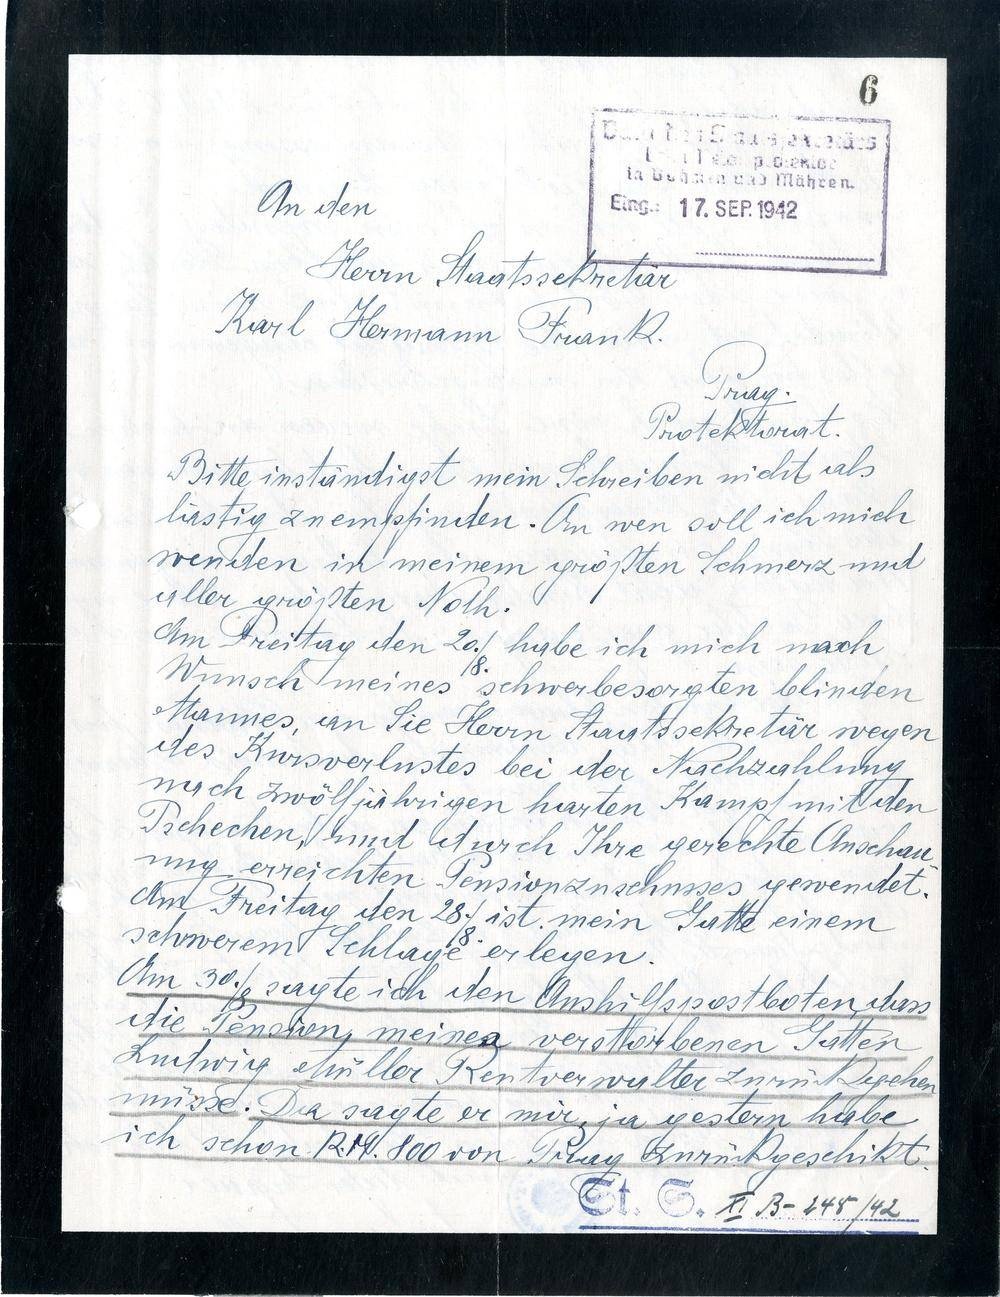 6
Büro des Staatssekretärs
beim Reichsprotektor
in Böhmen und Mähren.
Eing.: 17. SEP. 1942
An den
Herrn Staatssekretär
Karl Hermann Frank.
Prag.
Protektorat.
Bitte inständigst mein Schreiben nicht als
lästig zu empfinden. An wen soll ich mich
wenden in meinem größten Schmerz und
aller größten Noth.
Am Freitag den 20./8. habe ich mich nach
Wunsch meines schwerbesorgten blinden
Mannes, an Sie Herrn Staatssekretär wegen
des Kursverlustes bei der Nachzahlung
nach zwölfjährigen harten Kampf mit den
Tschechen, und durch Ihre gerechte Anschau-
ung erreichten Pensionzuschusses gewendet.
Am Freitag den 28./8. ist mein Gatte einem
schwerem Schlage erlegen.
Am 30./8 sagte ich den Aushilfspostboten, dass
die Pension meines versttorbenen Gatten
Ludwig Müller Rentverwalter zurückgehen
müsse. Da sagte er mir, ja gestern habe
ich schon R.M. 800 von Prag zurückgeschikt.
St. S. XI B-245/42